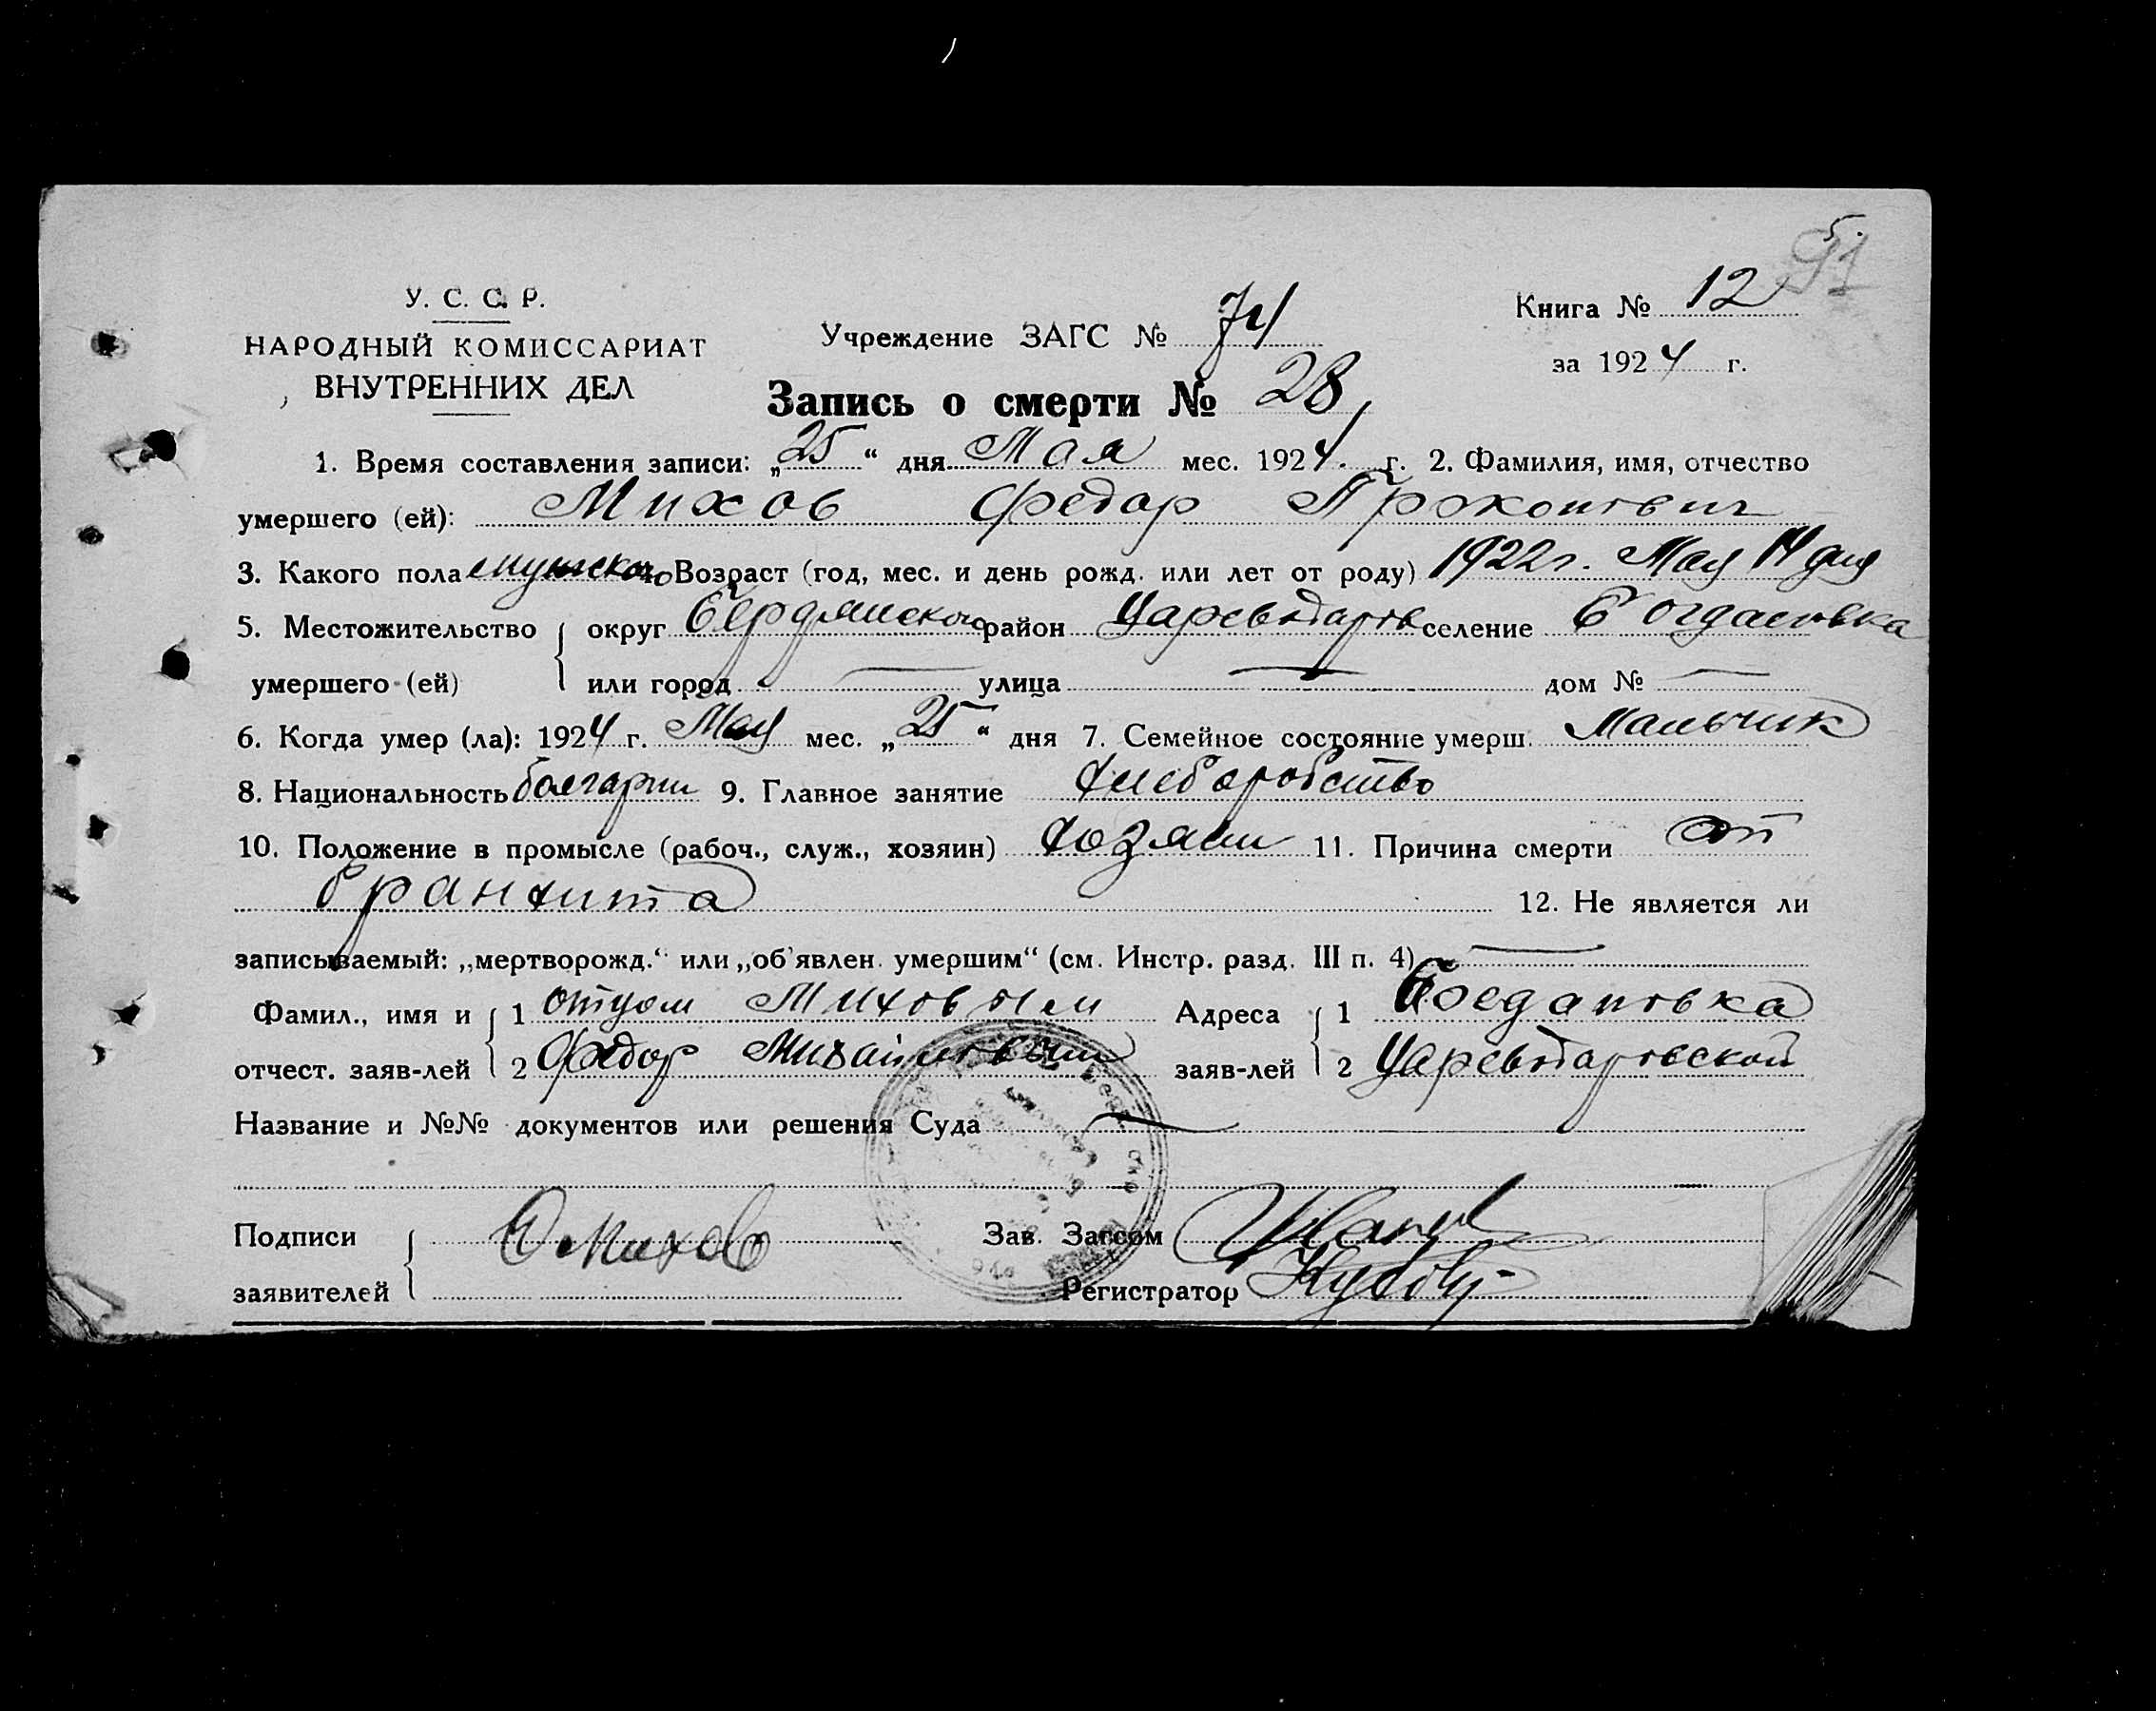 5.
91
У. С. С. Р.
Книга № 12
НАРОДНЫЙ КОМИССАРИАТ
Учреждение ЗАГС № 74
за 1924 г.
ВНУТРЕННИХ ДЕЛ
Запись о смерти № 28
1. Время составления записи: „25“ дня Мая мес. 1924 г. 2. Фамилия, имя, отчество
умершего (ей): Михов Федор Прокопович
3. Какого пола мужского Возраст (год, мес. и день рожд. или лет от роду) 1922 г. Мая 14 дня
5. Местожительство округ Бердянского район Цареводаров селение Богдановка
умершего (ей) или город — улица — дом № —
6. Когда умер (ла): 1924 г. Мая мес. „25“ дня 7. Семейное состояние умерш. Мальчик
8. Национальность болгарин 9. Главное занятие хлеборобство
10. Положение в промысле (рабоч., служ., хозяин) хозяин 11. Причина смерти от
бранхита 12. Не является ли
записываемый: „мертворожд.“ или „об'явлен. умершим“ (см. Инстр. разд. III п. 4) —
Фамил., имя и 1 отцом Миховым Адреса 1 Богдановка
отчест. заяв-лей 2 Федор Михайловичем заяв-лей 2 Цареводаровской
Название и №№ документов или решения Суда —
Подписи Ф Михов Зав. Загсом
заявителей Регистратор